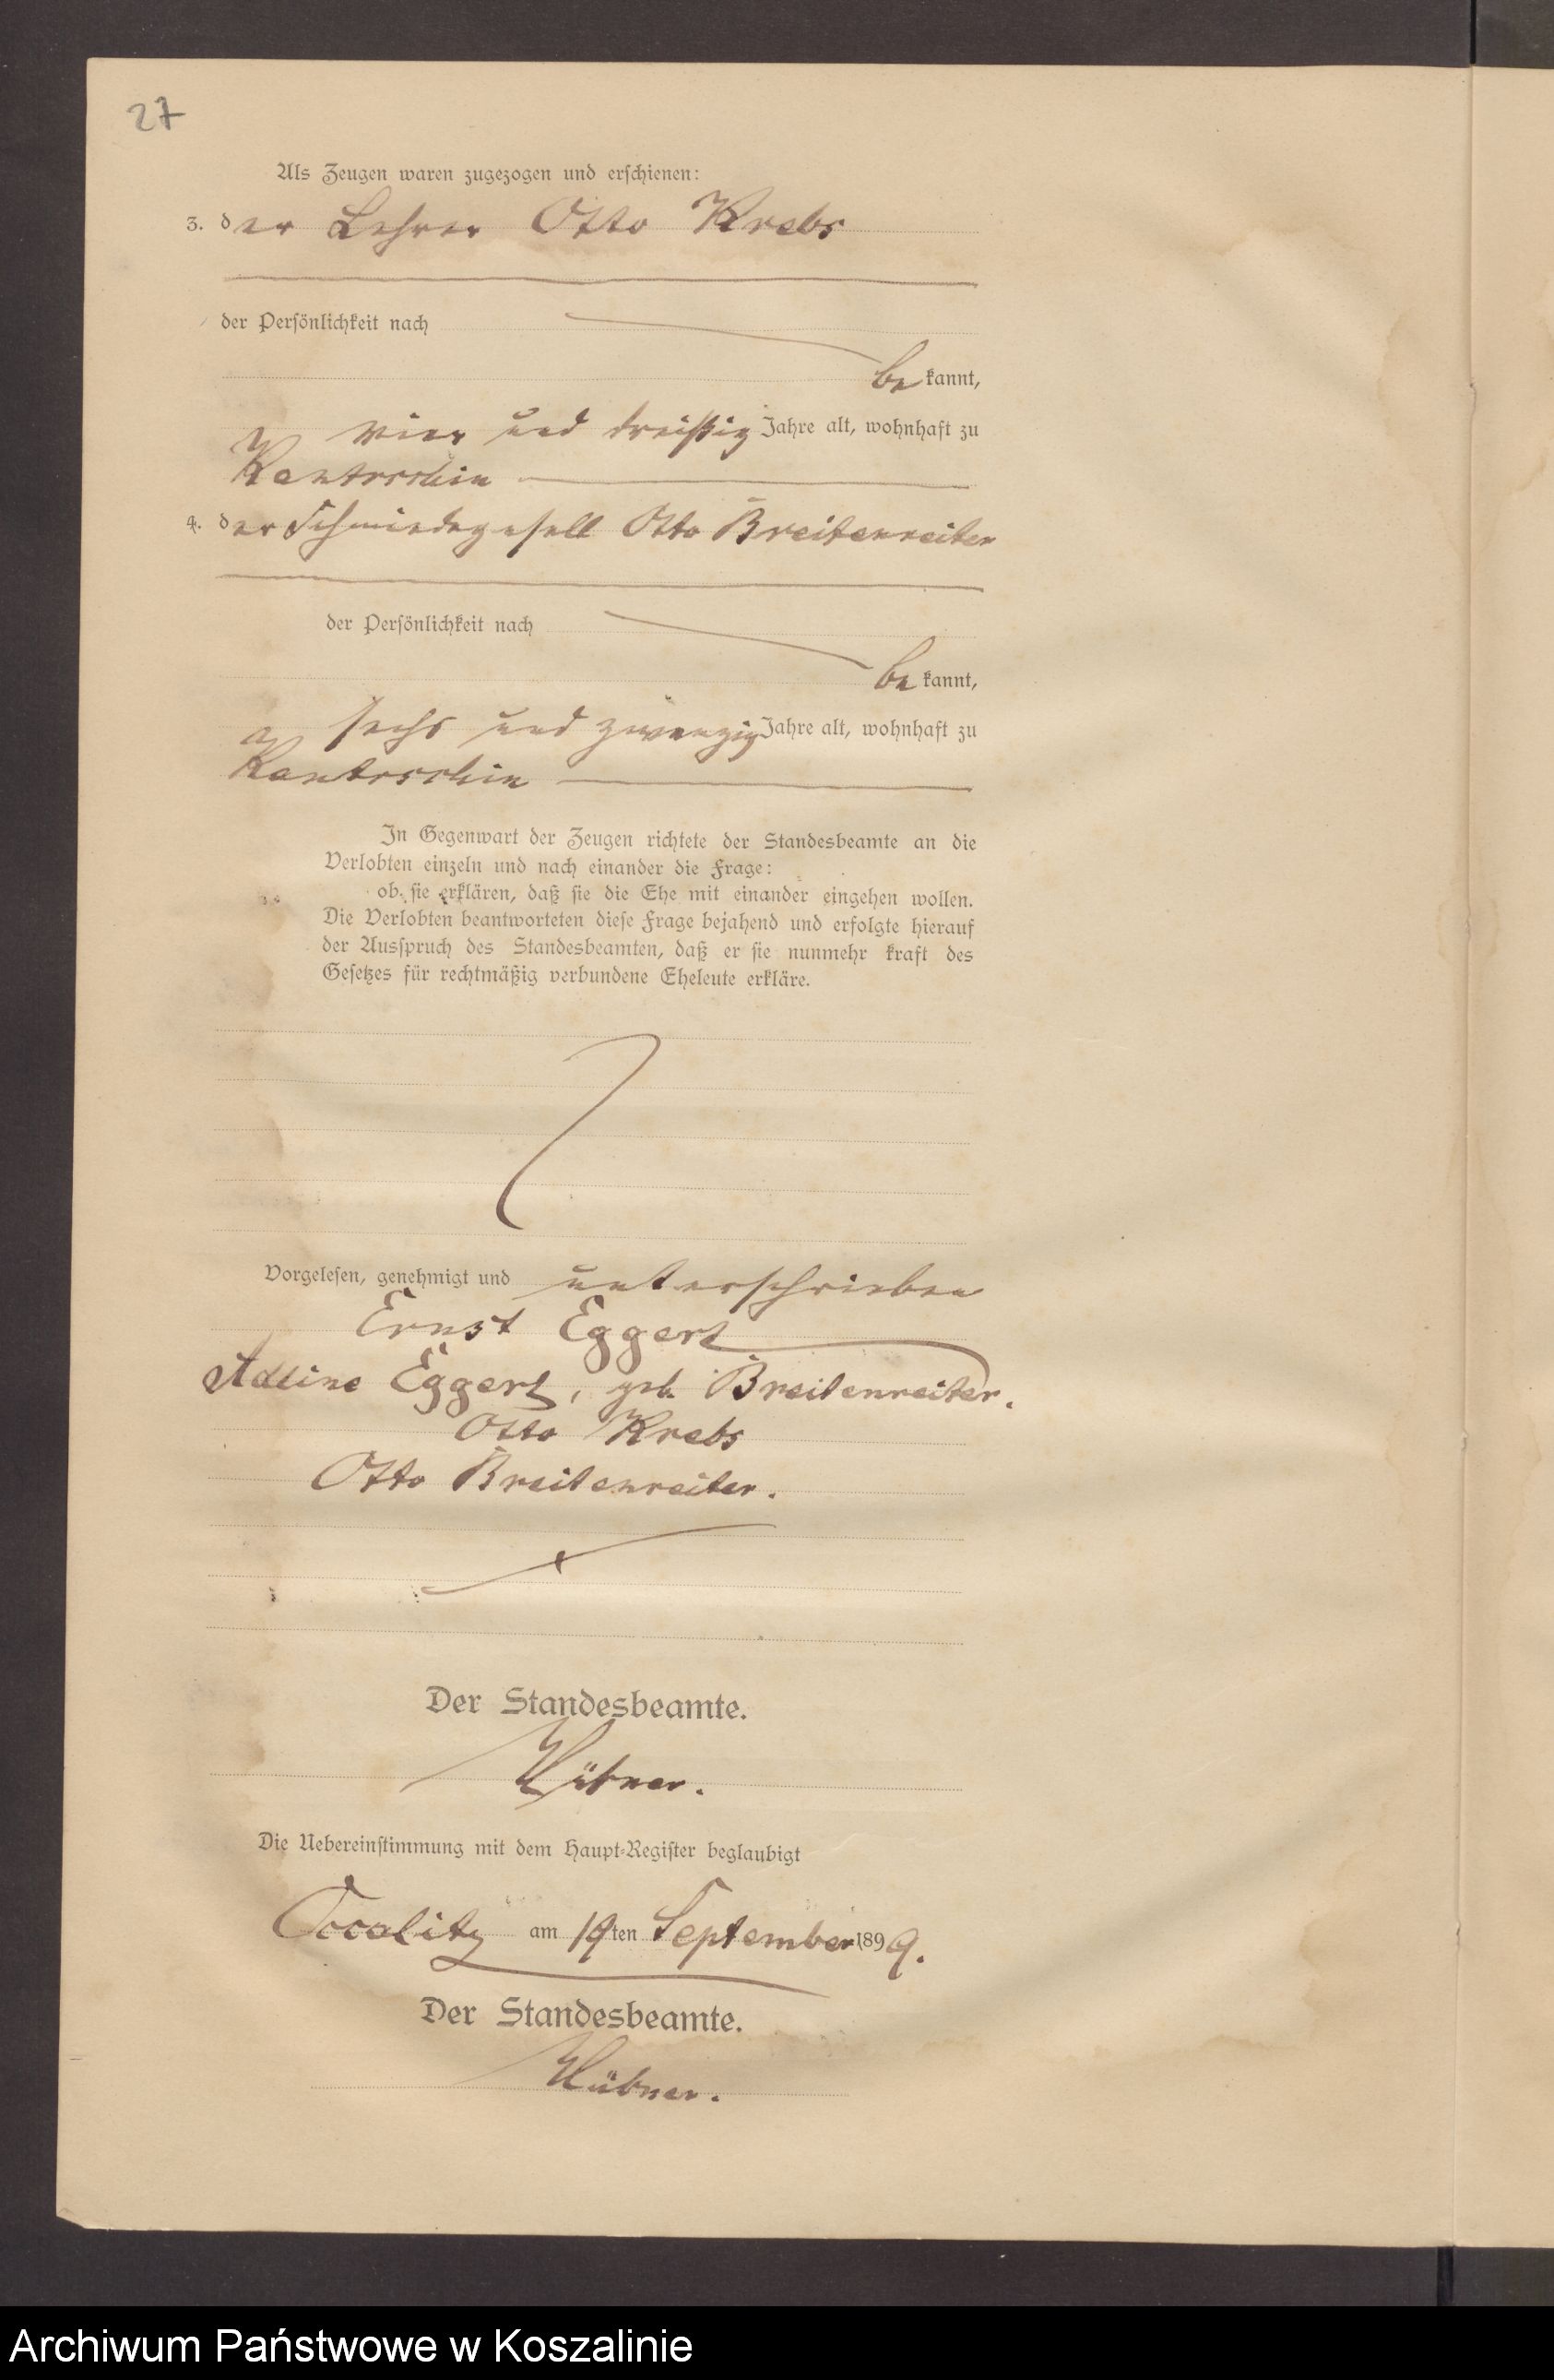 27
Als Zeugen waren zugezogen und erschienen:
3. der Lehrer Otto Krebs
der Persönlichkeit nach
be kannt,
vier und dreißig Jahre alt, wohnhaft zu
4. der Schmiedegesell Otto Breitenreiter
der Persönlichkeit nach
be kannt,
sechs und zwanzig Jahre alt, wohnhaft zu
In Gegenwart der Zeugen richtete der Standesbeamte an die
Verlobten einzeln und nach einander die Frage:
ob sie erklären, daß sie die Ehe mit einander eingehen wollen.
Die Verlobten beantworteten diese Frage bejahend und erfolgte hierauf
der Ausspruch des Standesbeamten, daß er sie nunmehr kraft des
Gesetzes für rechtmäßig verbundene Eheleute erkläre.
Vorgelesen, genehmigt und unterschrieben
Ernst Eggert
Adline Eggert, geb. Breitenreiter.
Otto Krebs
Otto Breitenreiter.
Der Standesbeamte.
Hübner.
Die Uebereinstimmung mit dem Haupt-Register beglaubigt
am 19ten September 1899.
Der Standesbeamte.
Hübner.
Archiwum Państwowe w Koszalinie